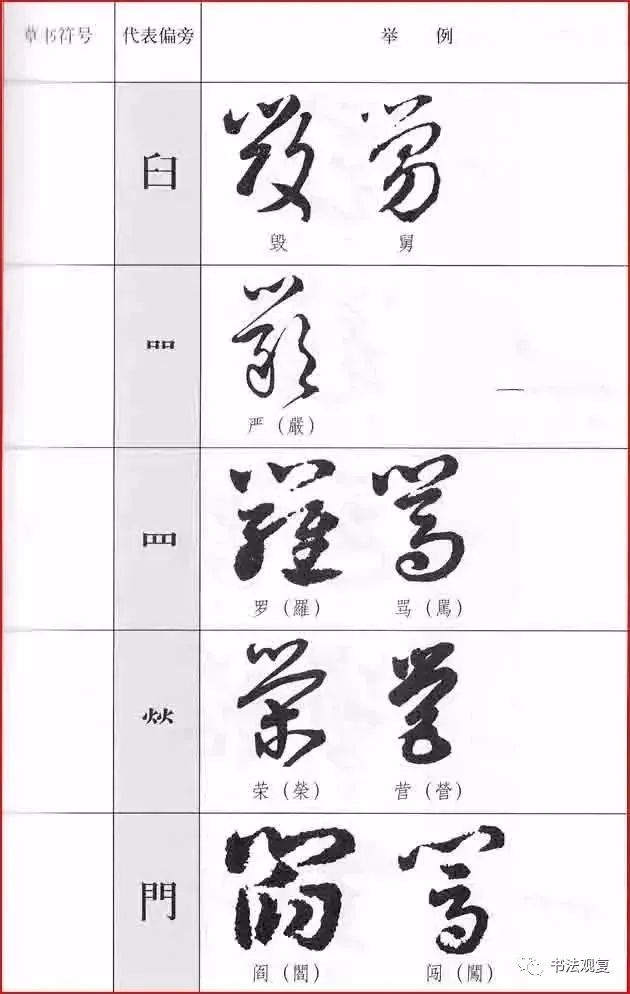 草书符号 代表偏旁 举 例
臼
毁 舅
吅
严（嚴）
罒
罗（羅） 骂（罵）
炏
荣（榮） 营（營）
門
阎（閻） 闯（闖）
书法观复